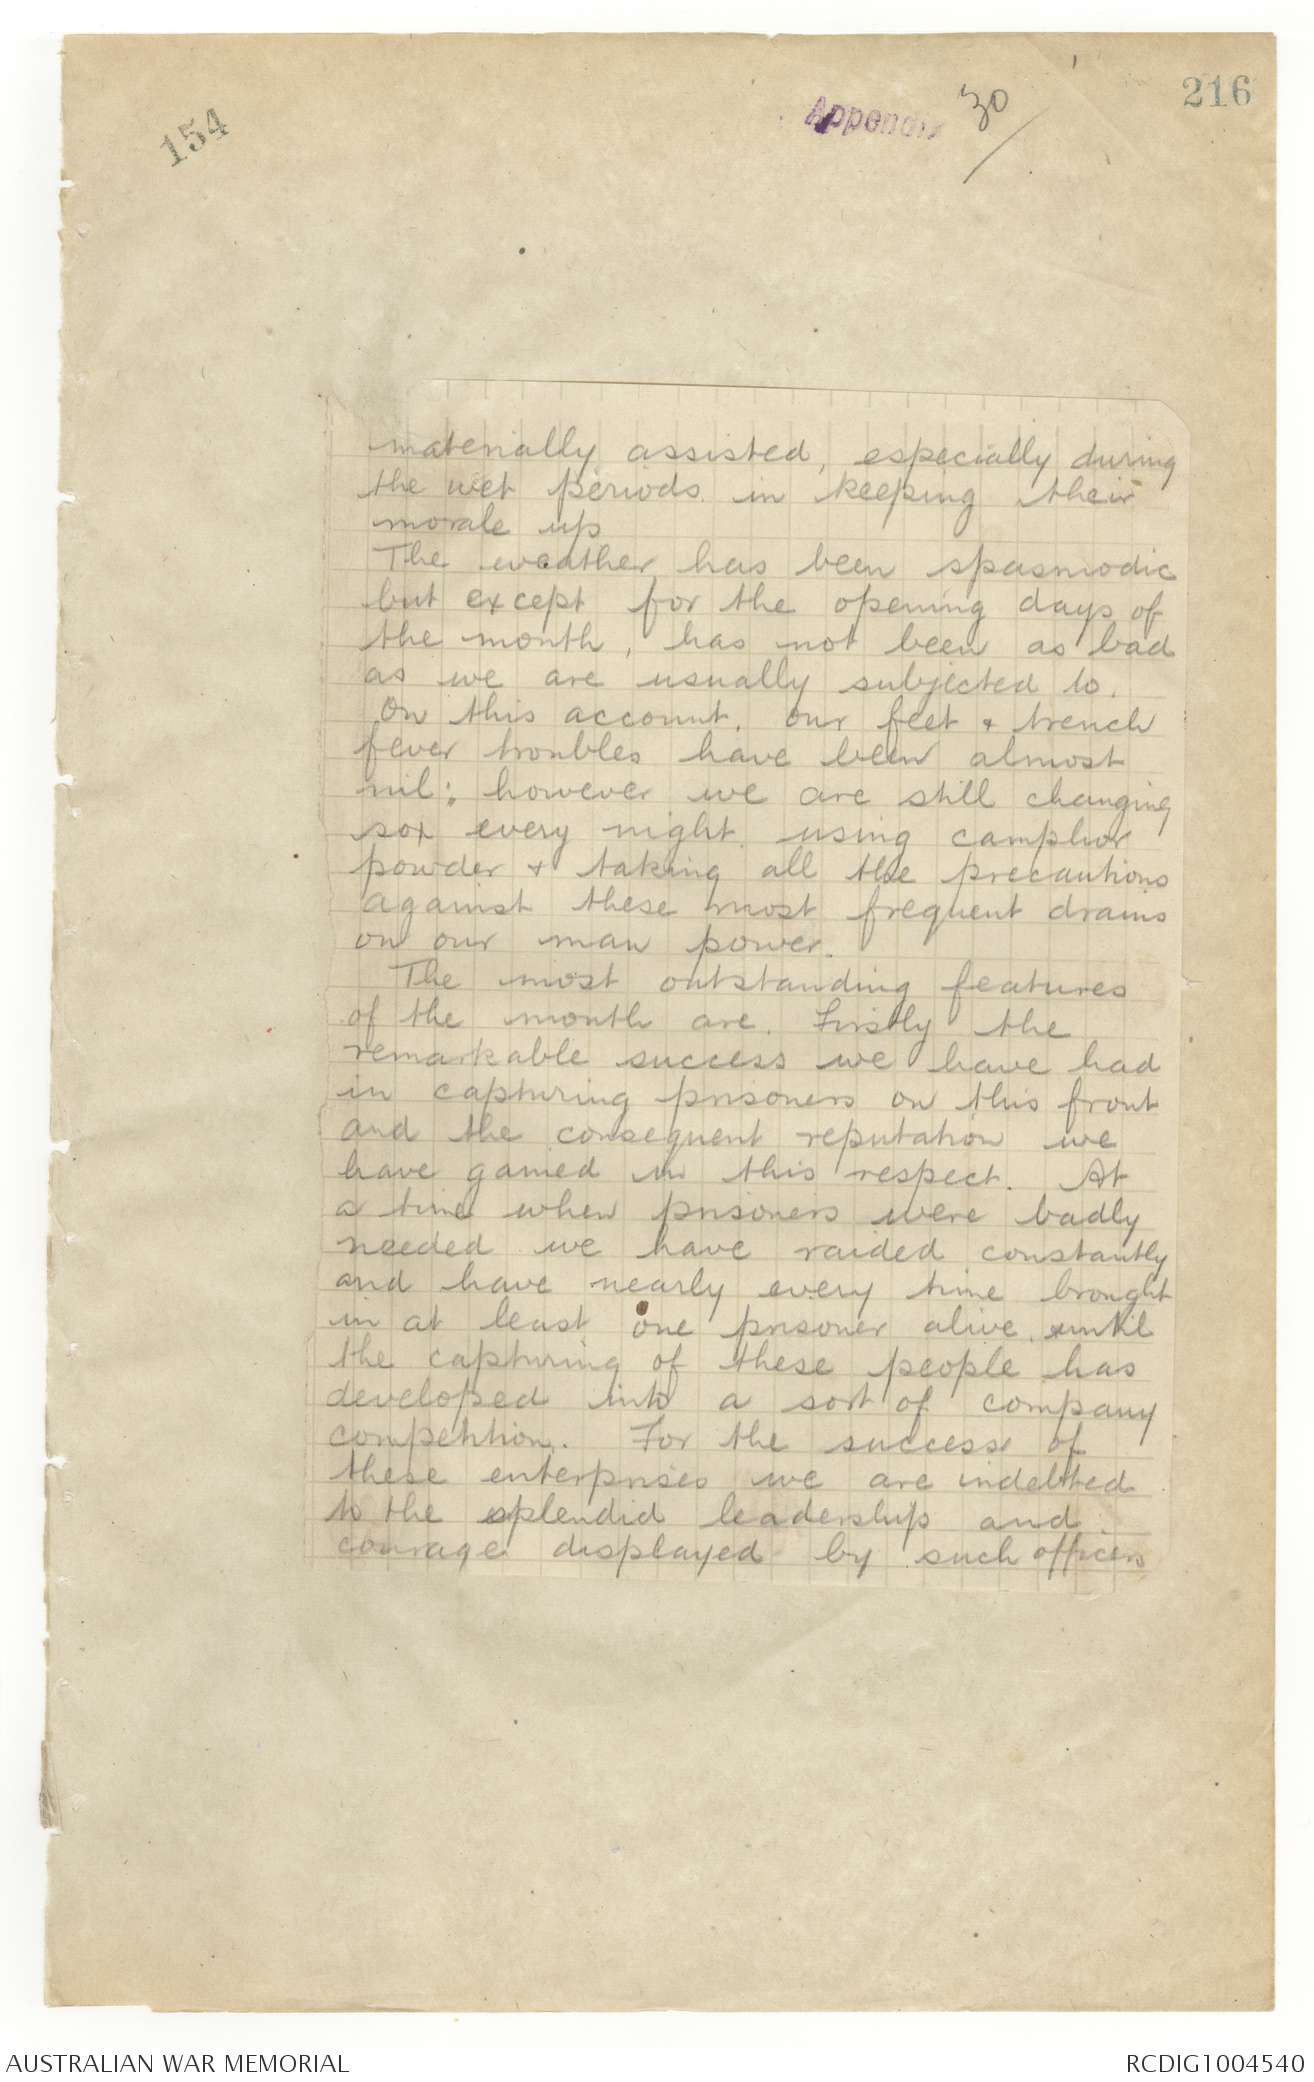 154
Appendix 30
216
materially assisted, especially during
the wet periods in keeping their
morale up
The weather has been spasmodic
but except for the opening days of
the month, has not been as bad
as we are usually subjected to.
On this account, our feet & trench
fever troubles have been almost
nil; however we are still changing
sox every night using camphor
powder & taking all the precautions
against these most frequent drains
on our man power.
The most outstanding features
of the month are. Firstly the
remarkable success we have had
in capturing prisoners on this front
and the consequent reputation we
have gained in this respect. At
a time when prisoners were badly
needed we have raided constantly
and have nearly every time brought
in at least one prisoner alive, until
the capturing of these people has
developed into a sort of company
competition. For the success of
these enterprises we are indebted
to the splendid leadership and
courage displayed by such officers
AUSTRALIAN WAR MEMORIAL
RCDIG1004540